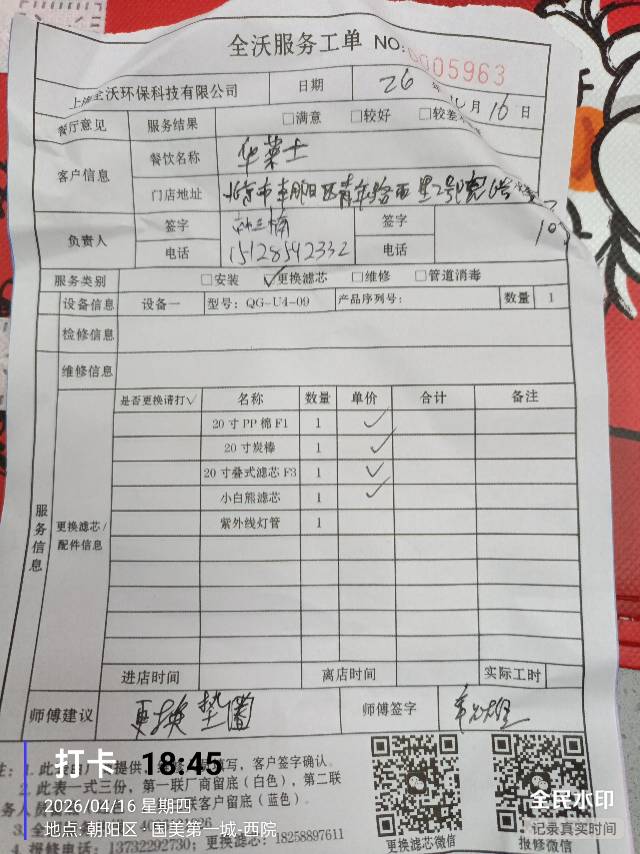 全沃服务工单 NO:0005963
上海全沃环保科技有限公司 日期 26 年 月 16 日
餐厅意见 服务结果 □满意 □较好 □较差
客户信息 餐饮名称 华莱士
门店地址 北京市朝阳区青年路西里2号院
负责人 签字 签字
电话 15128542332 电话
服务类别 □安装 ☑更换滤芯 □维修 □管道消毒
设备信息 设备一 型号: QG-U4-09 产品序列号: 数量 1
检修信息
维修信息
服务信息 更换滤芯/配件信息
是否更换请打√ 名称 数量 单价 合计 备注
20寸PP棉F1 1 ✓
20寸炭棒 1 ✓
20寸叠式滤芯F3 1 ✓
小白熊滤芯 1 ✓
紫外线灯管 1
进店时间 离店时间 实际工时
师傅建议 更换垫圈 师傅签字
打卡 18:45
注: 1. 此 提供 填写，客户签字确认。
2. 此表一式三份，第一联厂商留底（白色），第二联
务人员 客户留底（蓝色）。
2026/04/16 星期四
3. 全
地点: 朝阳区·国美第一城-西院
4. 报修电话: 13732292730; 更换滤芯: 18258897611
更换滤芯微信
报修微信
全民水印
记录真实时间